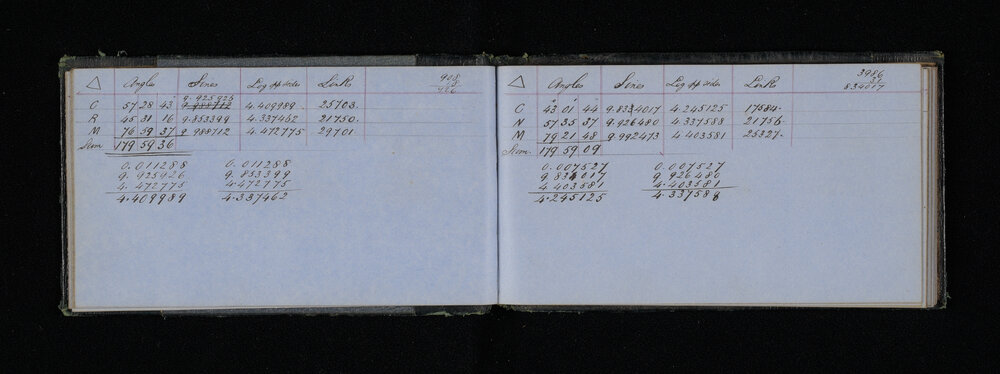 908
18
926
△ Angles Sines Log opp sides Links
9.925926
C 57 28 43 9.988712 4.409989 25703.
R 45 31 16 9.853399 4.337462 21750.
M 76 59 37 9.988712 4.472775 29701
Sum 179 59 36
0.011288 0.011288
9.925926 9.853399
4.472775 4.472775
4.409989 4.337462
3986
31
834017
△ Angles Sines Log opp sides Links
C 43 01 44 9.834017 4.245125 17584.
N 57 35 37 9.926480 4.337588 21756.
M 79 21 48 9.992473 4.403581 25327.
Sum 179 59 09
0.007527 0.007527
9.834017 9.926480
4.403581 4.403581
4.245125 4.337588